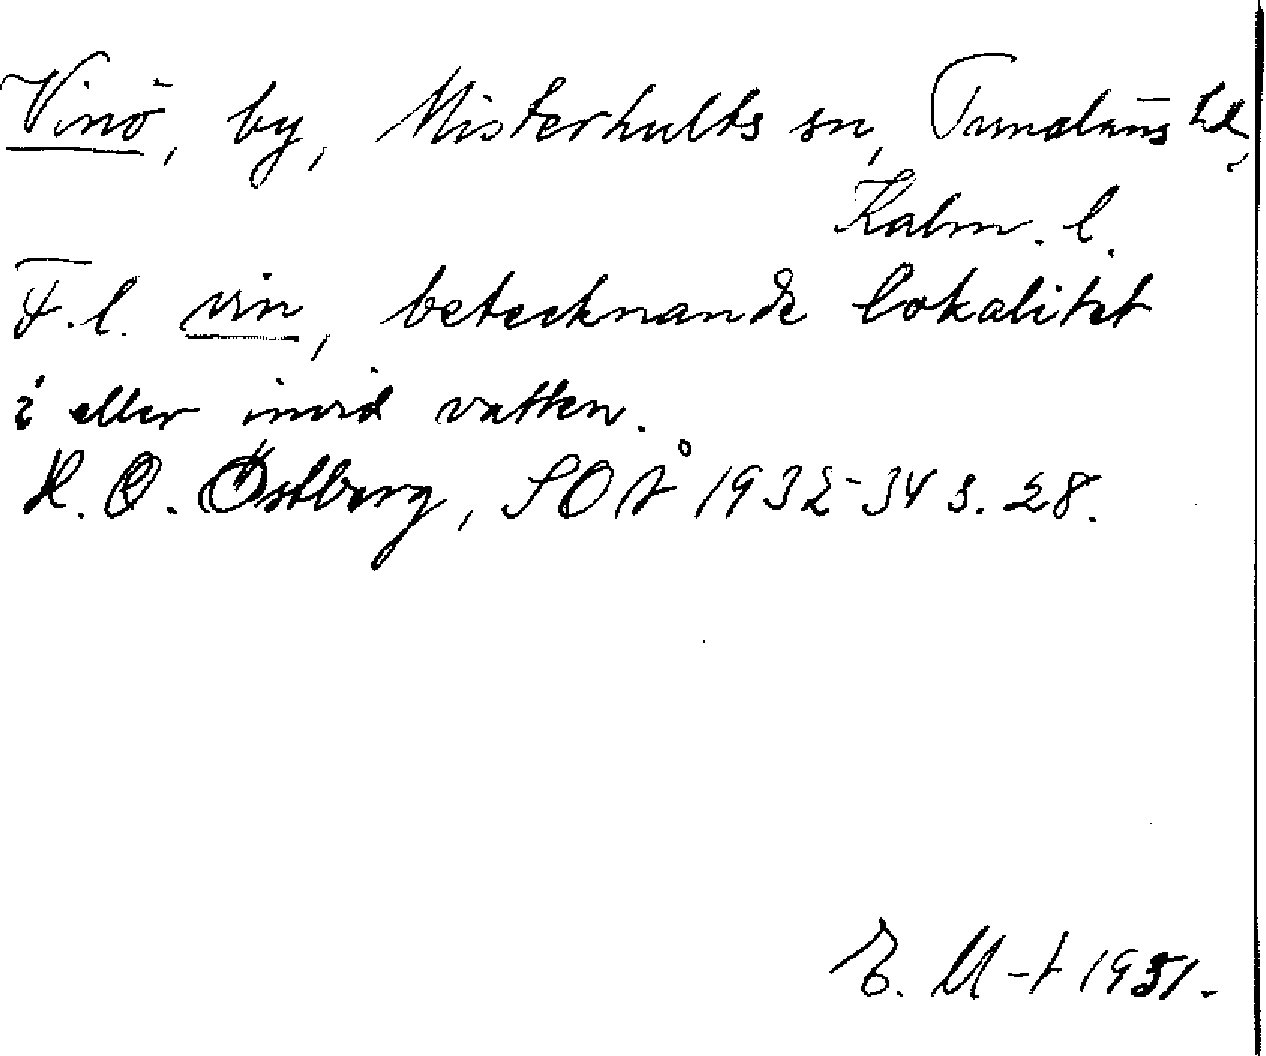 Vinö, by, Misterhults sn, Tunaläns hd,
Kalm. l.
F.l. vin, betecknande lokalitet
i eller invid vatten.
H. O. Östberg, SOÅ 1932-34 s. 28.
E. M-t 1951.